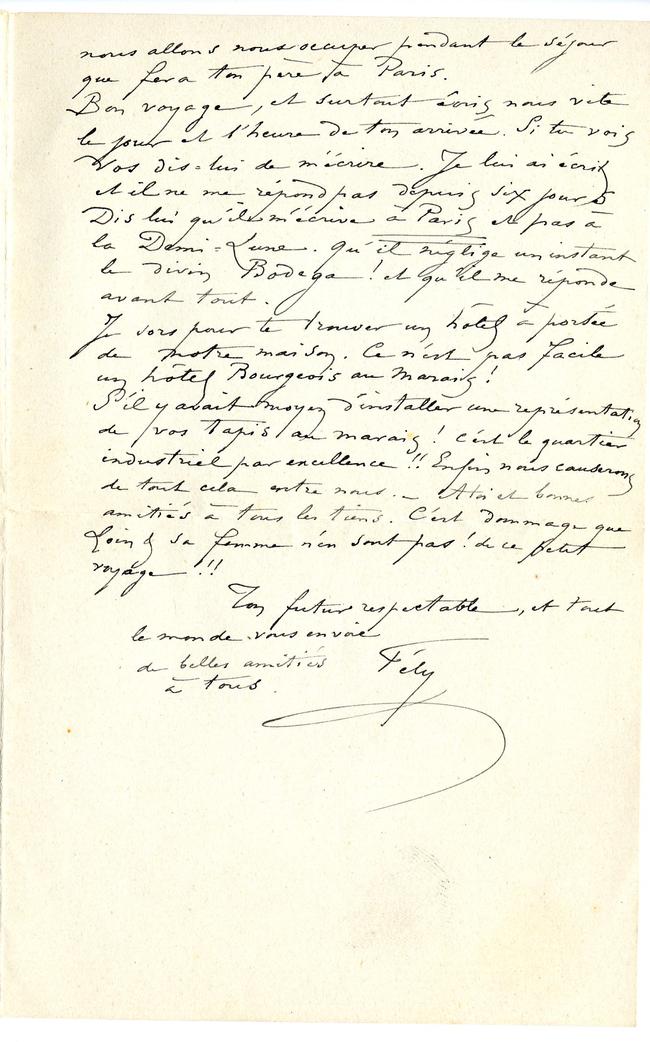 nous allons nous occuper pendant le séjour
que fera ton père à Paris.
Bon voyage, et surtout écris nous vite
le jour et l'heure de ton arrivée. Si tu vois
Vos dis-lui de m'écrire. Je lui ai écrit
et il ne me répond pas depuis six jours
Dis lui qu'il m'écrive à Paris et pas à
la Demi-Lune. Qu'il néglige un instant
le divin Bodega ! et qu'il me réponde
avant tout.
Je sors pour te trouver un hôtel à portée
de notre maison. Ce n'est pas facile
un hôtel Bourgeois au Marais !
S'il y avait moyen d'installer une représentation
de vos tapis au marais ! c'est le quartier
industriel par excellence !! Enfin nous causerons
de tout cela entre nous. _ A toi et bonnes
amitiés à tous les tiens. C'est dommage que
& sa femme n'en sont pas ! de ce petit
voyage !!
Ton futur respectable, et tout
le monde vous envoie
de belles amitiés Fély
à tous.